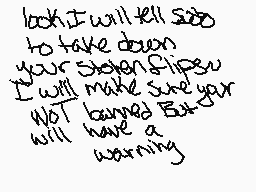 look I will tell sudo
to take down
your stolen flipsu
I will make sure your
NOT banned But
will have a
warning